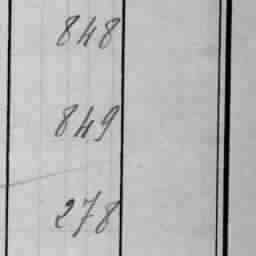 848
849
278